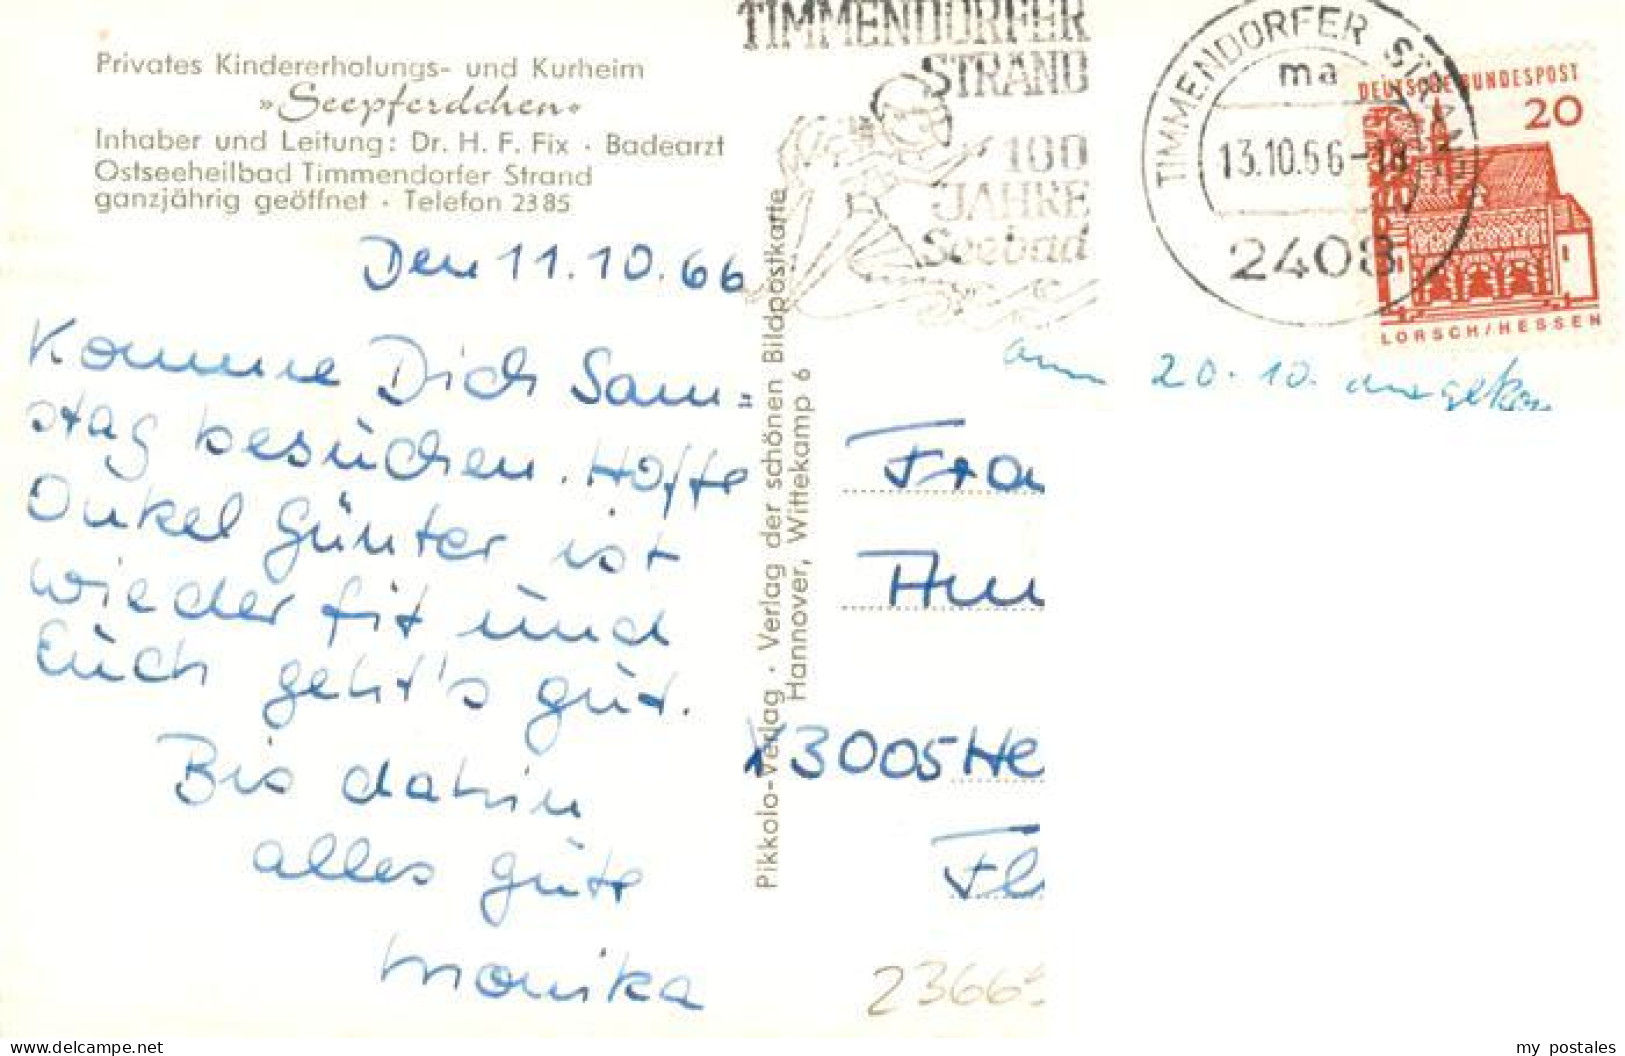 Privates Kindererholungs- und Kurheim
»Seepferdchen«
Inhaber und Leitung: Dr. H. F. Fix · Badearzt
Ostseeheilbad Timmendorfer Strand
ganzjährig geöffnet · Telefon 2385
Den 11.10.66
Komme Dich Sam=
stag besuchen. Hoffe
Onkel Günter ist
wieder fit und
Euch geht's gut.
Bis dahin
alles gute
Monika
Pikkolo-Verlag · Verlag der schönen Bildpostkarte
Hannover, Wittekamp 6
TIMMENDORFER
STRAND
100
JAHRE
Seebad
TIMMENDORFER STRAND
ma
13.10.66-18
2408
DEUTSCHE BUNDESPOST
20
LORSCH/HESSEN
am 20.10. angekom
Fra
3005 He
Fl
23665
delcampe.net
my postales